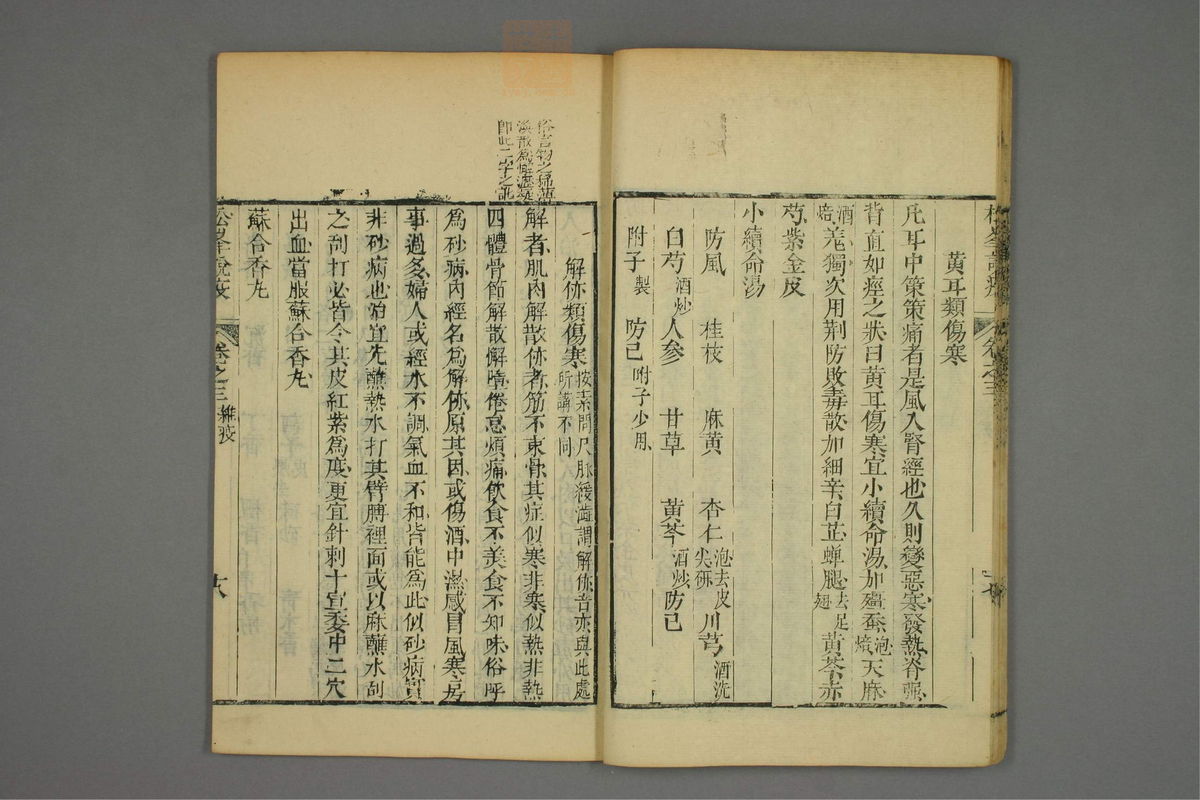 黃耳類傷寒
凡耳中策策痛者是風入腎經也久則變惡寒發熱脊強
背直如痙之狀曰黃耳傷寒宜小續命湯加殭蚕泡焙天麻
酒焙羌獨次用荆防敗毒散加細辛白芷蝉腿去足翅黃芩赤
芍紫金皮
小續命湯
防風 桂枝 麻黃 杏仁泡去皮尖研 川芎酒洗
白芍酒炒 人參 甘草 黃芩酒炒 防己
附子製 防己咐子少用
俗言物之
即此二字之訛
解㑊類傷寒按素問尺脉緩澁謂解㑊音亦與此處所講不同
解者肌肉解散㑊者筋不束骨其症似寒非寒似熱非熱
四體骨節解散懈惰倦怠煩痛飲食不美食不知味俗呼
為砂病內經名為解㑊原其因或傷酒中濕感冒風寒房
事過多婦人或經水不調氣血不和皆能為此似砂病實
非砂病也治宜先蘸熱水打其臂膊裡面或以麻蘸水刮
之刮打必皆令其皮紅紫為度更宜針刺十宣委中二穴
出血當服蘇合香丸
蘇合香丸
松峯說疫 卷之三 雜疫 十六